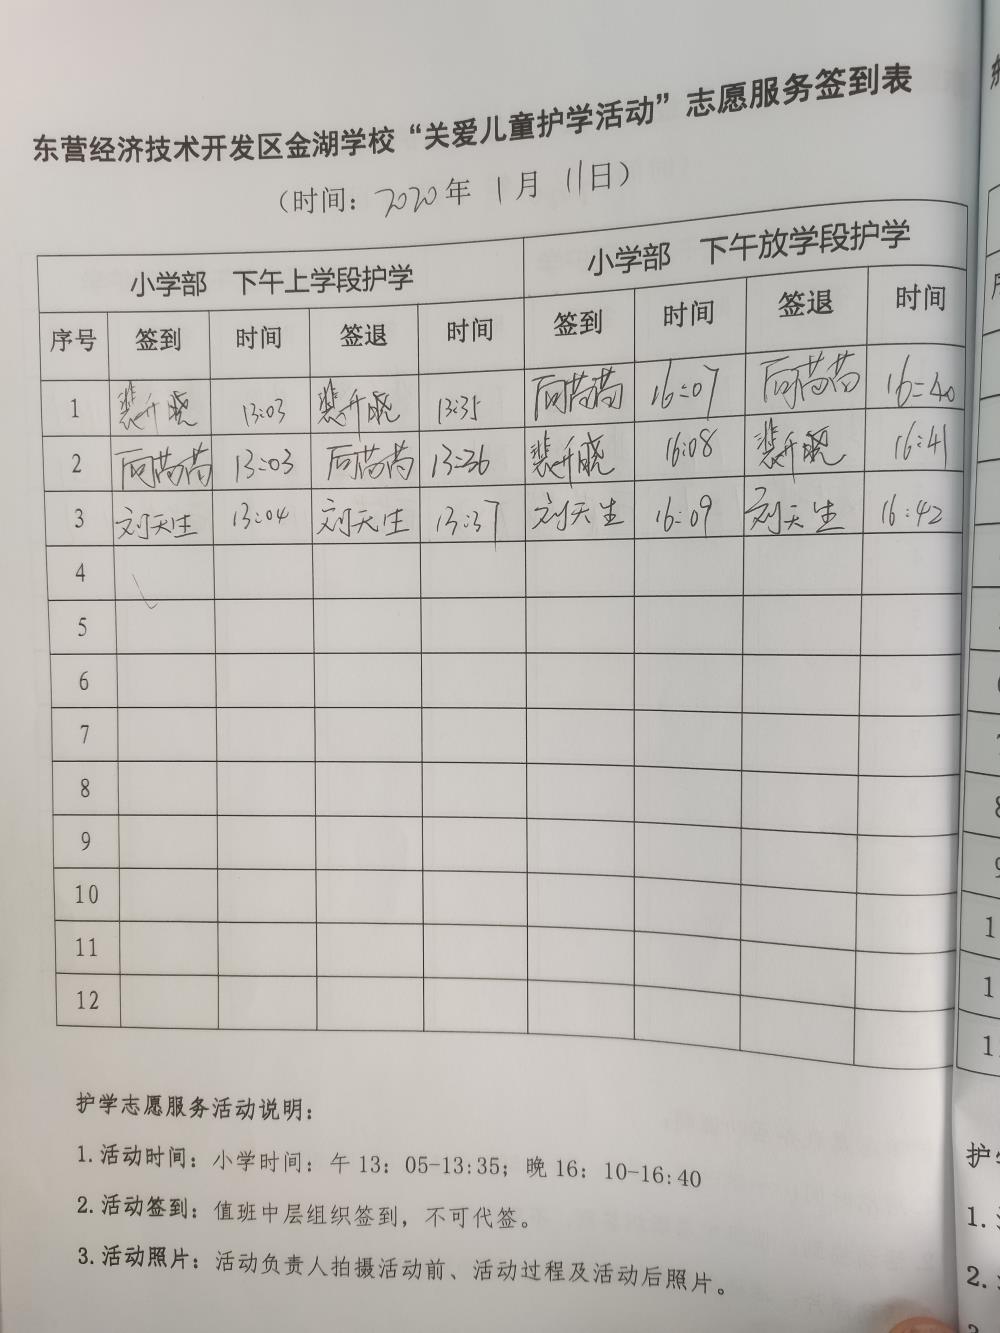 东营经济技术开发区金湖学校“关爱儿童护学活动”志愿服务签到表
（时间：2020年 1月 11日）
小学部 下午上学段护学 小学部 下午放学段护学
序号 签到 时间 签退 时间 签到 时间 签退 时间
1 裴升晓 13:03 裴升晓 13:35 16:07 16:40
2 13:03 13:36 裴升晓 16:08 裴升晓 16:41
3 刘天生 13:04 刘天生 13:37 刘天生 16:09 刘天生 16:42
4
5
6
7
8
9
10
11
12
护学志愿服务活动说明：
1.活动时间：小学时间：午13：05-13:35；晚16：10-16:40
2.活动签到：值班中层组织签到，不可代签。
3.活动照片：活动负责人拍摄活动前、活动过程及活动后照片。